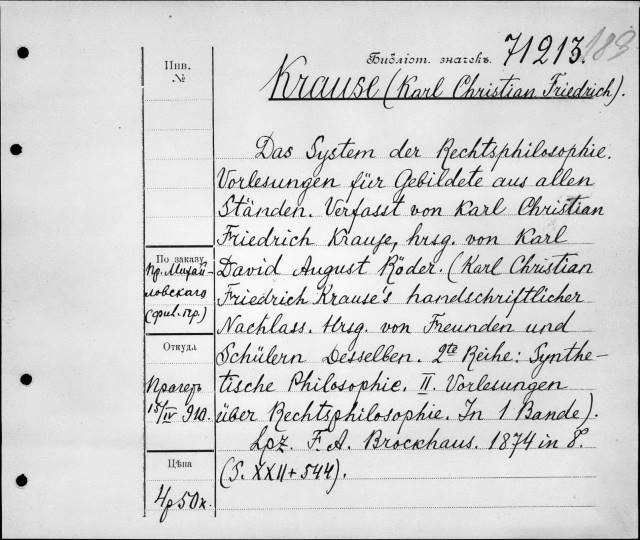 Библіот. значекъ. 71213. 183
Инв.
№
Krause (Karl Christian Friedrich).
Das System der Rechtsphilosophie.
Vorlesungen für Gebildete aus allen
Ständen. Verfasst von Karl Christian
Friedrich Krause, hrsg. von Karl
David August Röder. (Karl Christian
Friedrich Krause's handschriftlicher
Nachlass. Hrsg. von Freunden und
Schülern Desselben. 2te Reihe: Synthe-
tische Philosophie. II. Vorlesungen
über Rechtsphilosophie. In 1 Bande).
Lpz. F. A. Brockhaus. 1874 in 8°.
(S. XXII + 544).
По заказу
пр. Михай-
ловскаго
(фил. пр.)
Откуда
Прагеръ
15/IV 910.
Цѣна
4р 50к.